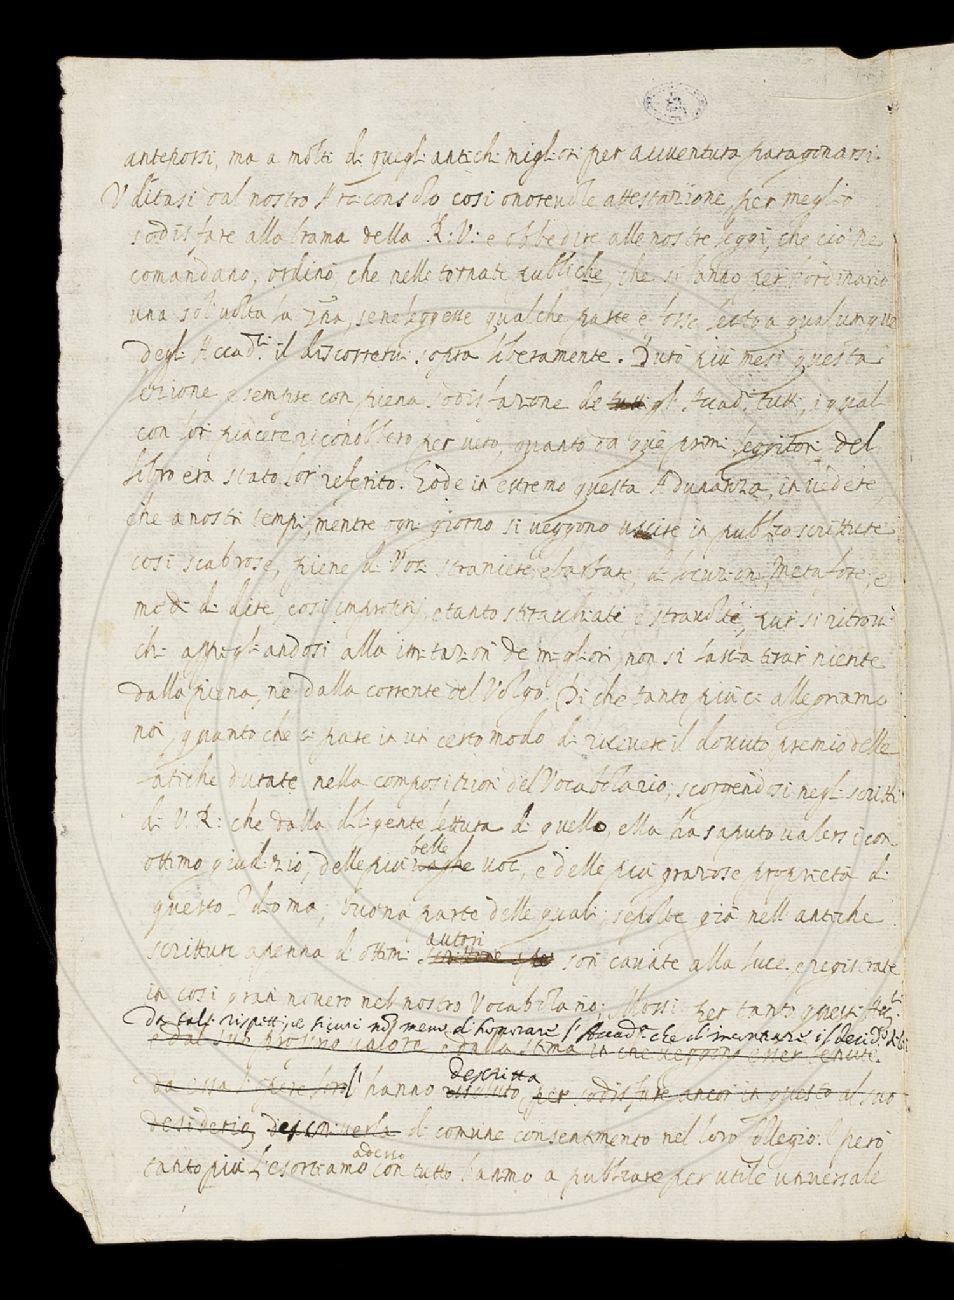 anteporsi, ma a molti di quegli antichi migliori per avventura paragonarsi.
Uditasi dal nostro Arciconsolo così onorevole attestazione, per meglio
sodisfare alla brama della P: V: e obbedire alle nostre leggi, che ciò ne
comandano, ordinò, che nelle tornate pubbliche, che si fanno per l'ordinario
una sol volta la, se ne leggesse qualche parte e fosse lecito a qualunque
degli Accad.ci il discorrervi sopra liberamente. Durò più mesi questa
lezione e sempre con piena sodisfazione de tutti gl' Accad.ci tutti, i quali
con lor piacere riconobbero per vero, quanto da que primi leggitori del
libro era stato lor referito. Gode in estremo questa Adunanza, in vedere,
che a nostri tempi, mentre ogni giorno si veggono uscire in pubblico scritture
così scabrose, piene di Voci straniere, e barbare, di locuzioni, Metafore, e
modi di dire, così improprij, e tanto stracchiati, e stravolti, pur si ritrovi
chi appigliandosi alla imitazion de migliori non si lascia tirar niente
dalla piena, nè dalla corrente del Volgo. Di che tanto più ci allegriamo
noi, quanto che ci pare in un certo modo di ricevere il dovuto premio delle
fatiche durate nella composizion del Vocabolario; scorgendosi negli scritti
di V. P: che dalla diligente lettura di quello, ella ha saputo valersi con
belle
ottimo giudizio, delle più vaghe voci, e delle più graziose proprietà di
questo Idioma; buona parte delle quali, sepolte già nell'antiche
autori
scritture a penna di ottimi son cavate alla luce e registrate
in così gran novero nel nostro Vocabolario; Mossi per tanto questi Acc.ci
da tali rispetti, e sicuri non meno di honorare l'Accad.a che di incontrare il
e dal suo proprio valore e dalla stima in che veggono esser tenute
descritta
l'hanno per sodisfare ancor in questo al suo
desiderio, descriverla di comune consentimento nel loro Collegio. E però
adesso
tanto più l'esortiamo con tutto l'animo a pubblicare per utile universale